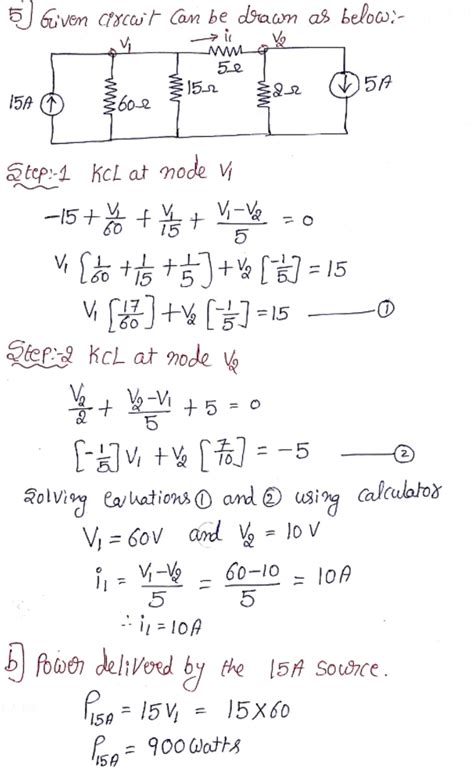 5] Given circuit can be drawn as below:-
V₁ → i₁ V₂
5Ω
15A 60Ω 15Ω 2Ω 5A
Step:-1 KCL at node V₁
-15 + V₁/60 + V₁/15 + (V₁-V₂)/5 = 0
V₁ [1/60 + 1/15 + 1/5] + V₂ [-1/5] = 15
V₁ [17/60] + V₂ [-1/5] = 15 ——— ①
Step:-2 KCL at node V₂
V₂/2 + (V₂-V₁)/5 + 5 = 0
[-1/5] V₁ + V₂ [7/10] = -5 ——— ②
Solving equations ① and ② using calculator
V₁ = 60V and V₂ = 10V
i₁ = (V₁-V₂)/5 = (60-10)/5 = 10A
∴ i₁ = 10A
b] Power delivered by the 15A source.
P₁₅A = 15V₁ = 15×60
P₁₅A = 900 Watts